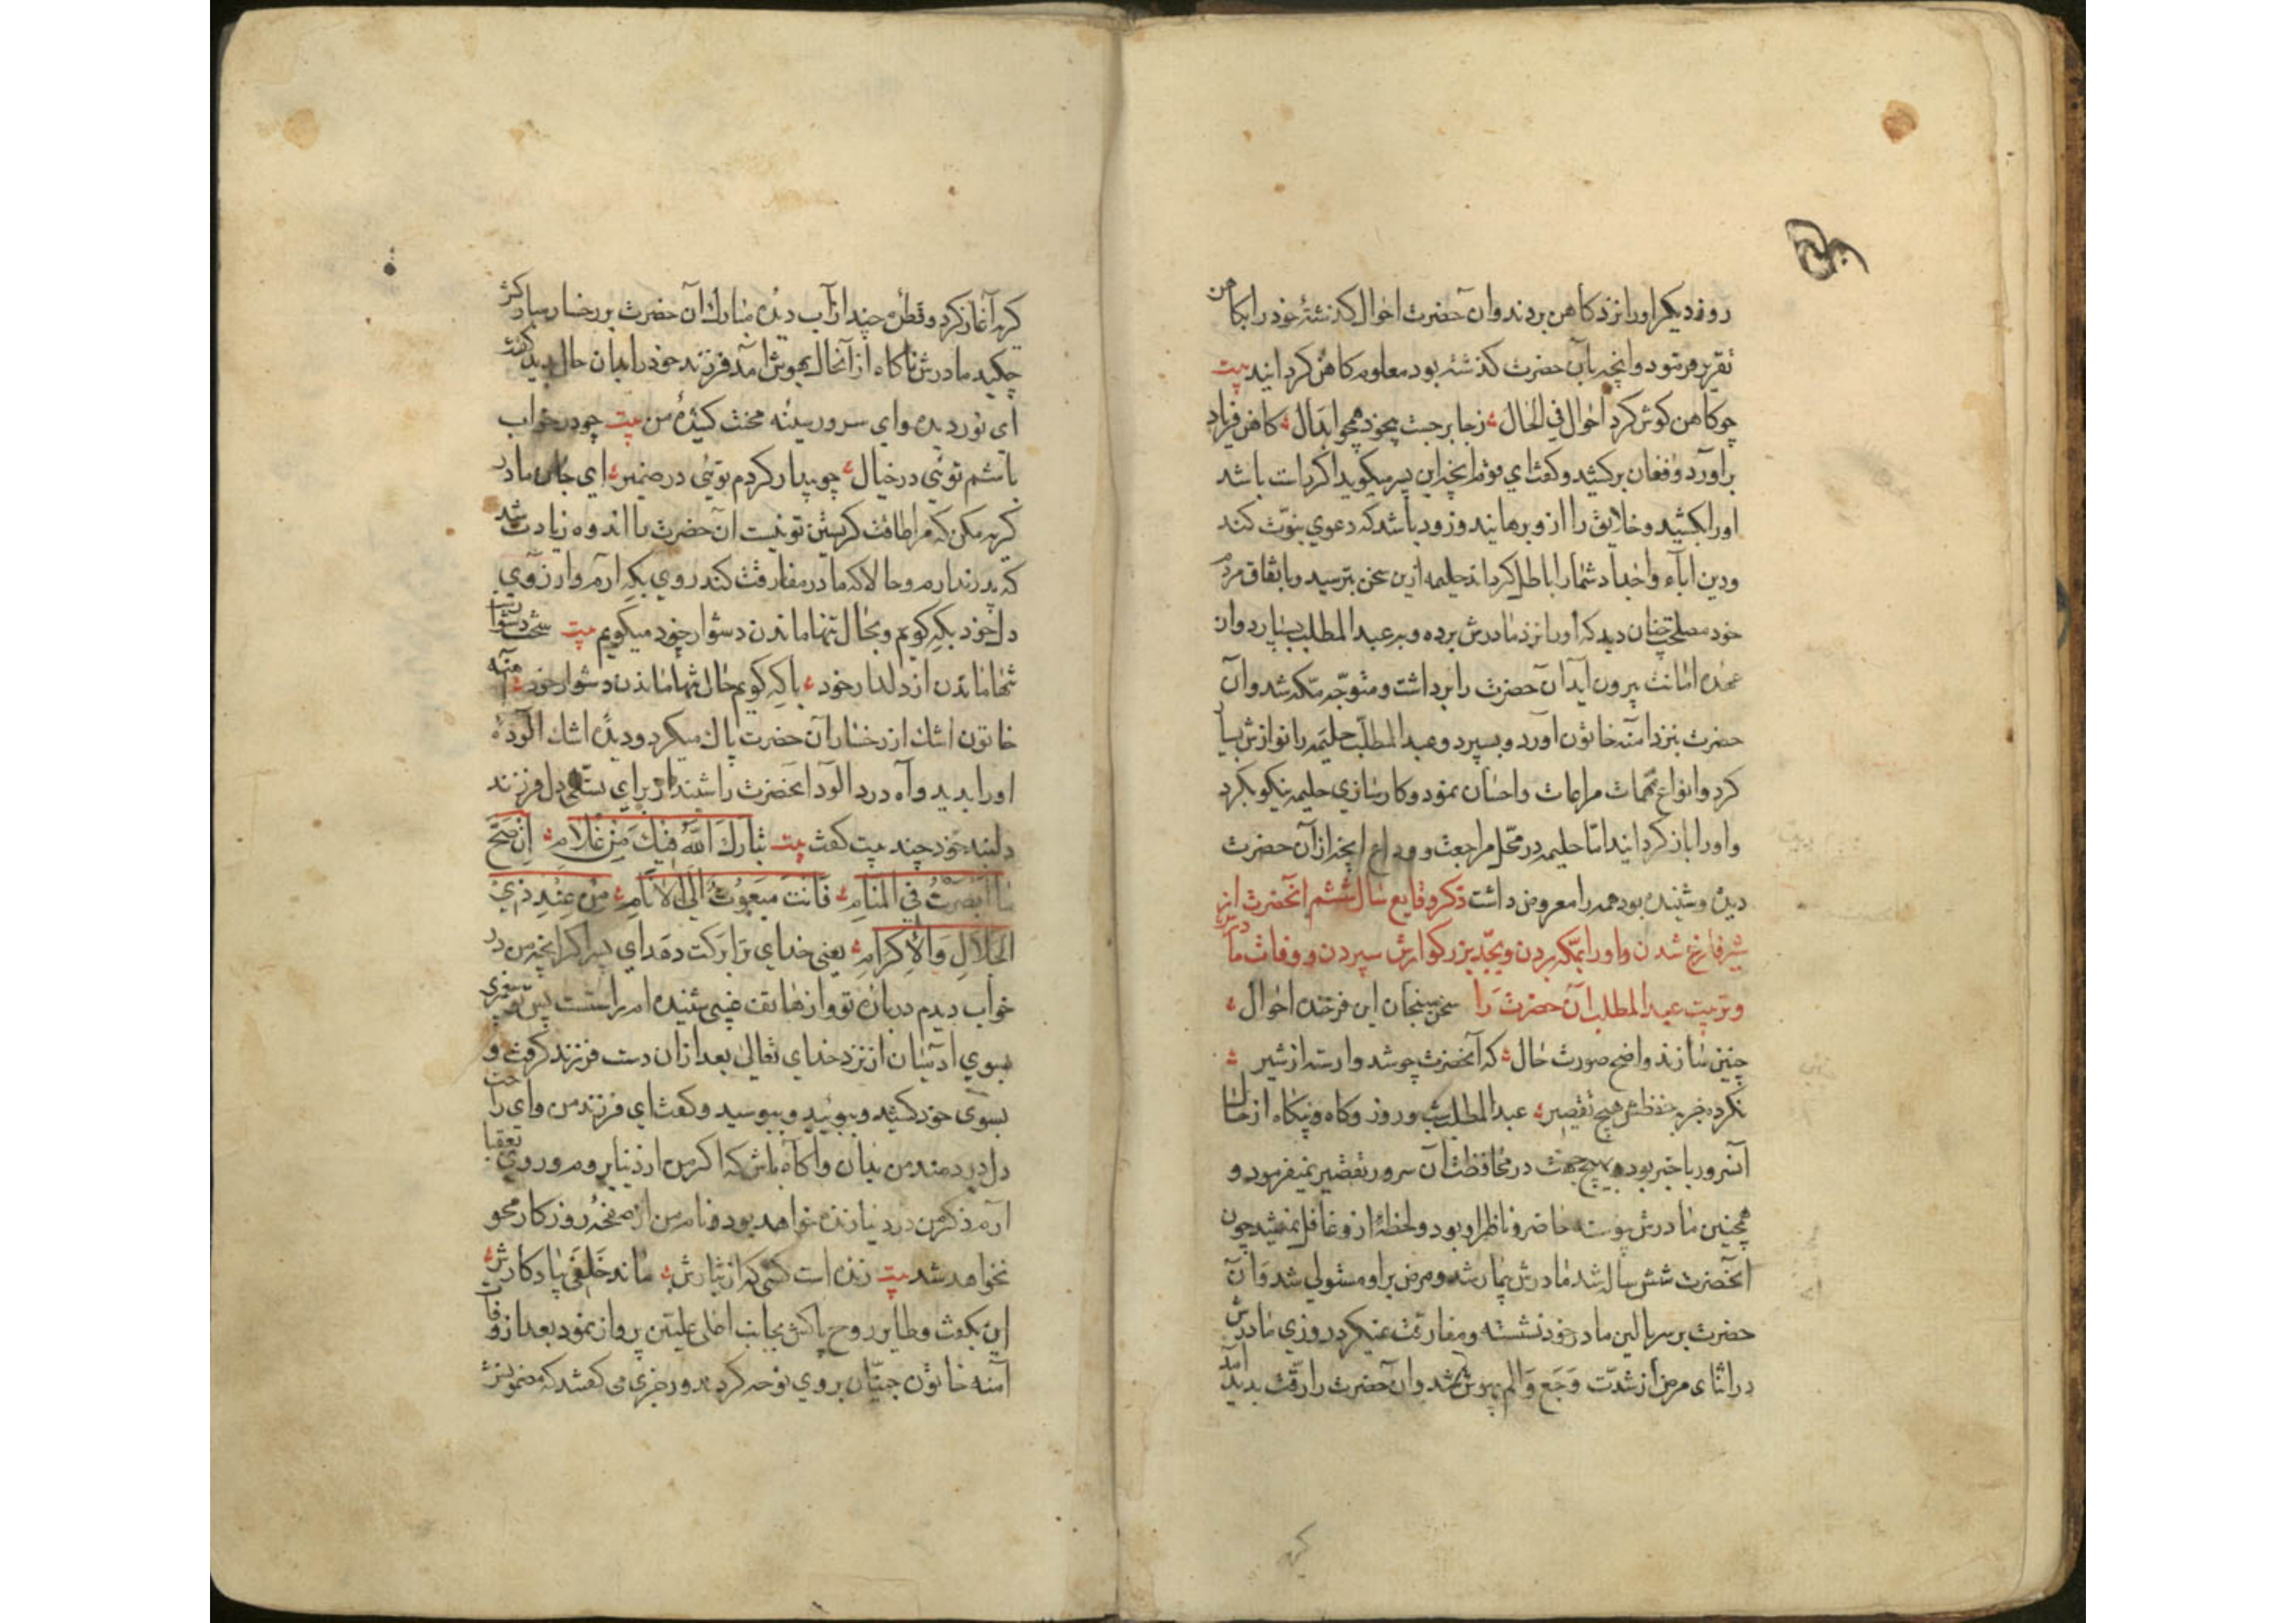 روز دیکر اورا نزد کاهن بردند و آن حضرت احوال کذشتهٔ خود را بکاهن
تقریر فرمود و انچه بآن حضرت کذشته بود معلوم کاهن کردانید بیت
چو کاهن کوش کرد احوال فی الحال ز جا برجست بیخود همچو ابدال کاهن فریاد
برآورد و فغان برکشید و کفت ای قوم انچه این پسر میکوید اکر راست باشد
اورا بکشید و خلایق را ازو برهانید و زود باشد که دعوی نبوّت کند
و دین اباء و اجداد شما را باطل کرداند حلیمه ازین سخن بترسید و باتفاق مردم
خود مصلحت چنان دید که اورا نزد مادرش برده و به عبد المطلب بسپارد و از
عهده امانت بیرون آید آن حضرت را برداشت و متوجّه مکه شد و آن
حضرت بنزد امنه خاتون آورد و بسپرد و عبد المطلب حلیمه را نوازش بسیار
کرد و انواع مهمات مراعات و احسان نمود و کارسازی حلیمه نیکو بکرد
و اورا باز کردانید امّا حلیمه در محّل مراجعت و وداع انچه از آن حضرت
دیده و شنیده بود همه را معروض داشت ذکر وقایع سال ششم انحضرت از
شیر فارغ شدن و اورا بمکه بردن و بجّد بزرکوارش سپردن و وفات مادرش
و تربیت عبد المطلب آن حضرت را سخن سنجان این فرخنده احوال
چنین سازند واضح صورت حال که آنحضرت چو شد وارسته از شیر
نکرده در حفظش هیچ تقصیر عبد المطلب شب و روز و کاه و بیکاه از حال
آنسرور باخبر بود و بهیچ جهت در محافظت آن سرور تقصیر نمیفرمود و
همچنین مادرش پیوسته حاضر و ناظر او بود و لحظهٔ ازو غافل نمیشد چون
انحضرت شش ساله شد مادرش بیمار شد و مرض بر او مستولی شد و آن
حضرت بر سر بالین مادر خود نشسته و مفارقت نمیکرد روزی مادرش
در اثنای مرض از شدّت وَجَع وَ الم بیهوش شد و آن حضرت را رقّت بدید آمد
کریه
کریه آغاز کرد و قطرهٔ چند از آب دیده مبارک آن حضرت بر رخسار مادرش
چکید مادرش ناکاه از آنحال بهوش امد فرزند خود را بدان حال بدید کفت
ای نور دیده و ای سرور سینه محنت کشیدهٔ من بیت چو در خواب
باشم توئی در خیال چو بیدار کردم توئی در ضمیر ای جان مادر
کریه مکن که مرا طاقت کریستن تو نیست ان حضرت را اندوه زیادت شد
که پدر ندارم و حالا که مادر مفارقت کند روی بکه ارم و ارزوی
دل خود بکه کویم و بحال تنها ماندن دشوار خود میکویم بیت سخت دشوارست
تنها ماندن از دلدار خود با که کویم حال تنها ماندن دشوار خود آمنه
خاتون اشک از رخسار آن حضرت پاک میکرد و دیدهٔ اشک الودهٔ
اورا بدید و آه درد الود انحضرت را شنید از برای تسلی دل فرزند
دلبند خود چند بیت کفت بیت تَبارَکَ اللّهُ فیکَ مِن غُلامِ اِن صَحَّ
مٰا اَبصَرتُ فِی المَنامِ فَانتَ مَبعوُثٌ اِلَی الاَنامِ مِن عِندِ ذِی
الجَلالِ وَ الاِکرامِ یعنی خدای ترا برکت دهد ای پسر اکر انچه من در
خواب دیدم دربارهٔ تو و از هاتف غیبی شنیده ام راستست پس تو پیغمبری
بسوی ادمیان از نزد خدای تعالی بعد ازان دست فرزند کرفت و
بسوی خود کشید و ببوئید و ببوسید و کفت ای فرزند من و ای راحت
دل دردمند من بدان و آکاه باش که اکر من از دنیا بروم و روی بعقبا
ارم ذکر من در دنیا زنده خواهد بود و نام من از صفحهٔ روزکار محو
نخواهد شد بیت زنده است کسی که از تبارش ماند خَلَفی بیادکارش
این بکفت و طایر روح پاکش بجانب اعلی علیّین پرواز نمود بعد از وفات
آمنه خاتون جنّیان بر وی نوحه کردند و رجزی می کفتند که مضمونش